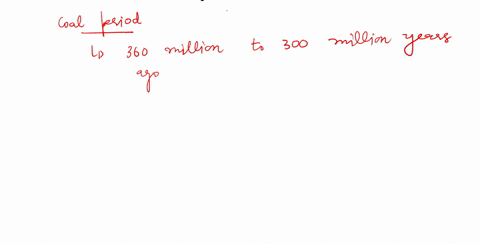 Coal period
↳ 360 million to 300 million years
ago